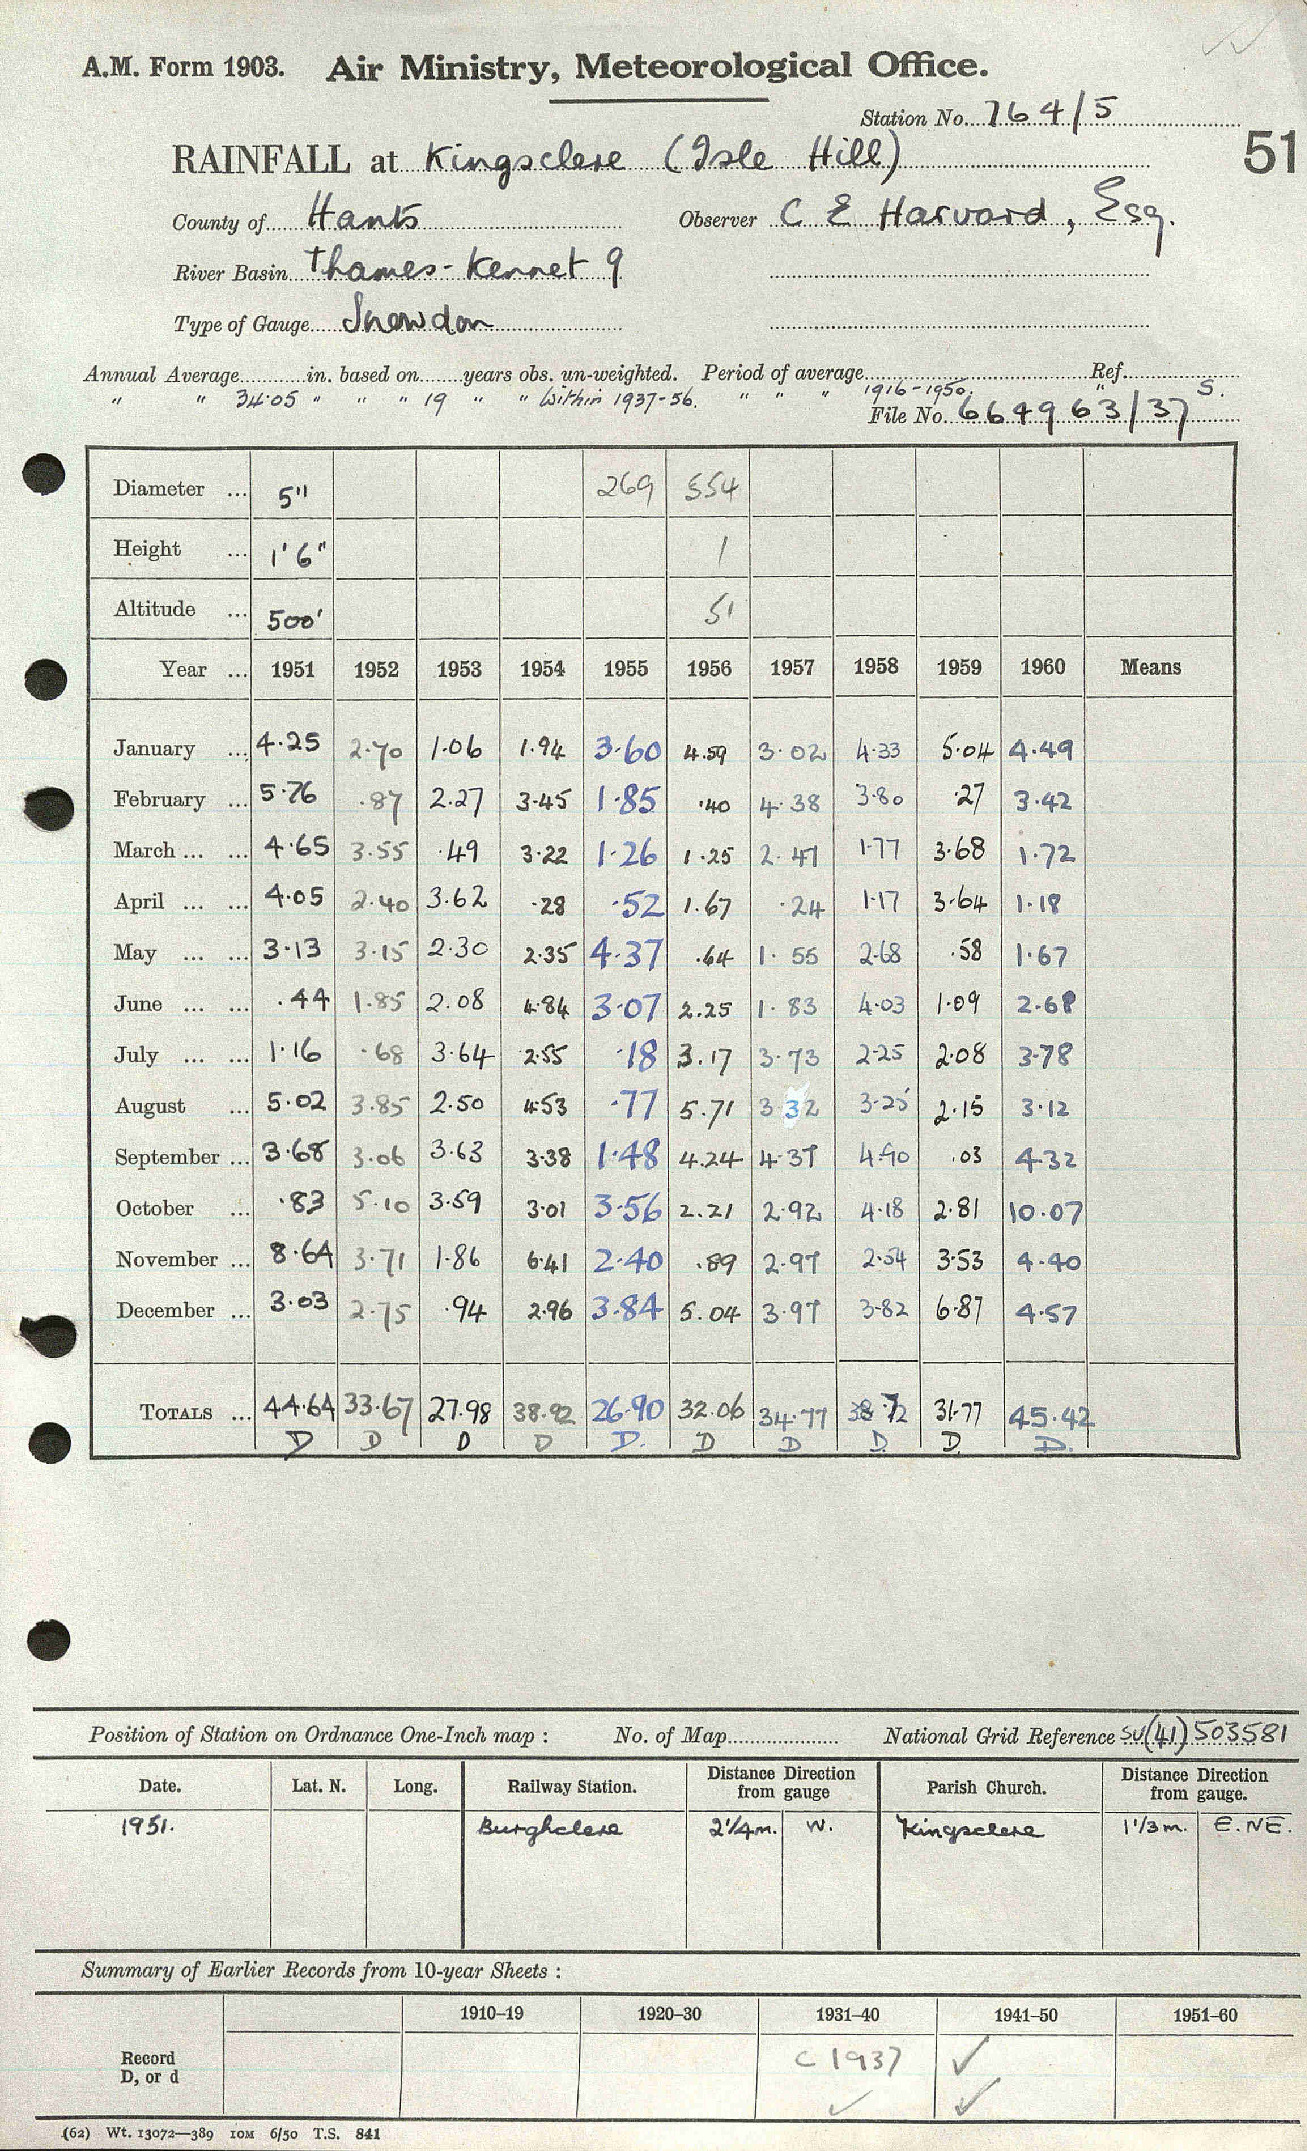 A.M. Form 1903. Air Ministry, Meteorological Office.
Station No. 764/5
51
RAINFALL at Kingsclere (Isle Hill)
County of Hants Observer C E Harvard, Esq.
River Basin Thames-Kennet 9
Type of Gauge Snowdon
Annual Average............in. based on........years obs. un-weighted. Period of average........ Ref........
" " 34.05 " " " 19 " " Within 1937-56. " " " 1916-1950. " S.
File No. 664963/37
Diameter ... 5" 269 554
Height ... 1'6" 1
Altitude ... 500' 51
Year ... 1951 1952 1953 1954 1955 1956 1957 1958 1959 1960 Means
January ... 4.25 2.70 1.06 1.94 3.60 4.59 3.02 4.33 5.04 4.49
February ... 5.76 .87 2.27 3.45 1.85 .40 4.38 3.80 .27 3.42
March ... ... 4.65 3.55 .49 3.22 1.26 1.25 2.47 1.77 3.68 1.72
April ... ... 4.05 2.40 3.62 .28 .52 1.67 .24 1.17 3.64 1.18
May ... ... 3.13 3.15 2.30 2.35 4.37 .64 1.55 2.68 .58 1.67
June ... ... .44 1.85 2.08 4.84 3.07 2.25 1.83 4.03 1.09 2.68
July ... ... 1.16 .68 3.64 2.55 .18 3.17 3.73 2.25 2.08 3.78
August ... 5.02 3.85 2.50 4.53 .77 5.71 3.32 3.25 2.15 3.12
September ... 3.68 3.06 3.63 3.38 1.48 4.24 4.37 4.90 .03 4.32
October ... .83 5.10 3.59 3.01 3.56 2.21 2.92 4.18 2.81 10.07
November ... 8.64 3.71 1.86 6.41 2.40 .89 2.97 2.54 3.53 4.40
December ... 3.03 2.75 .94 2.96 3.84 5.04 3.97 3.82 6.87 4.57
TOTALS ... 44.64 33.67 27.98 38.92 26.90 32.06 34.77 38.72 31.77 45.42
D D D D D. D D D. D. D.
Position of Station on Ordnance One-Inch map : No. of Map.................... National Grid Reference SU(41)503581
Date. Lat. N. Long. Railway Station. Distance Direction from gauge Parish Church. Distance Direction from gauge.
1951. Burghclere 2 1/4 m. W. Kingsclere 1 1/3 m. E.NE.
Summary of Earlier Records from 10-year Sheets :
1910–19 1920–30 1931–40 1941–50 1951–60
Record D, or d C 1937 ✓
✓ ✓
(62) Wt. 13072—389 10M 6/50 T.S. 841